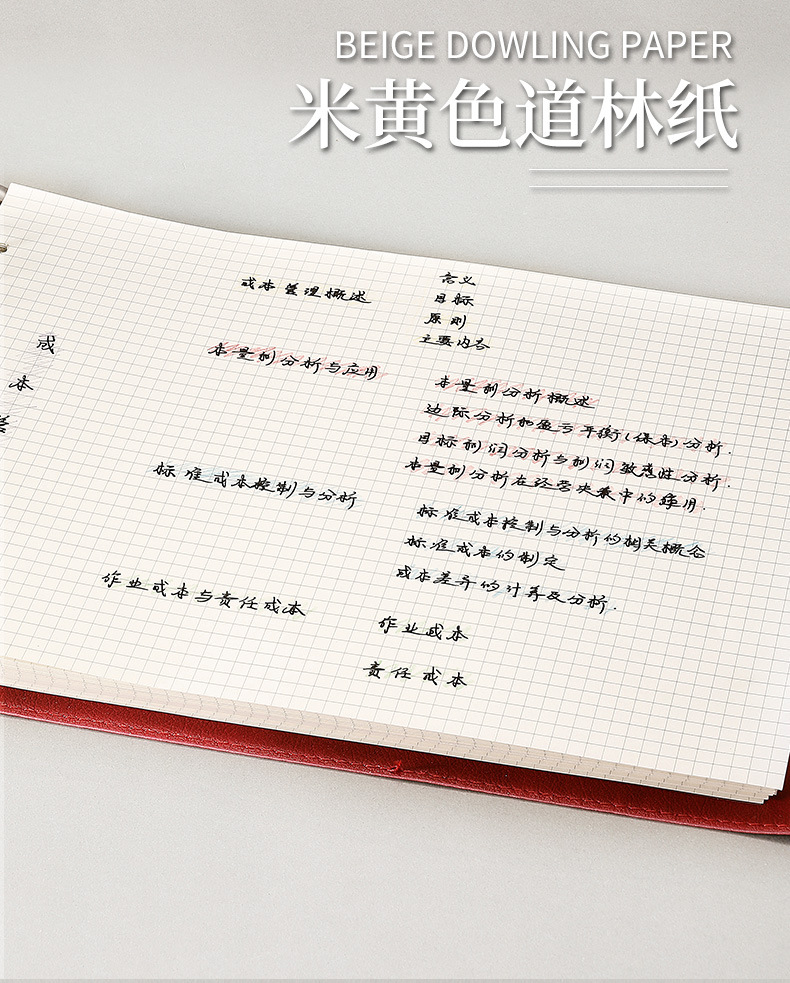 BEIGE DOWLING PAPER
米黄色道林纸
成
本
成本管理概述
含义
目标
原则
主要内容
本量利分析与应用
本量利分析概述
边际分析和盈亏平衡(保本)分析.
目标利润分析与利润敏感性分析.
本量利分析在经营决策中的作用.
标准成本控制与分析
标准成本控制与分析的相关概念
标准成本的制定
成本差异的计算及分析.
作业成本与责任成本
作业成本
责任成本